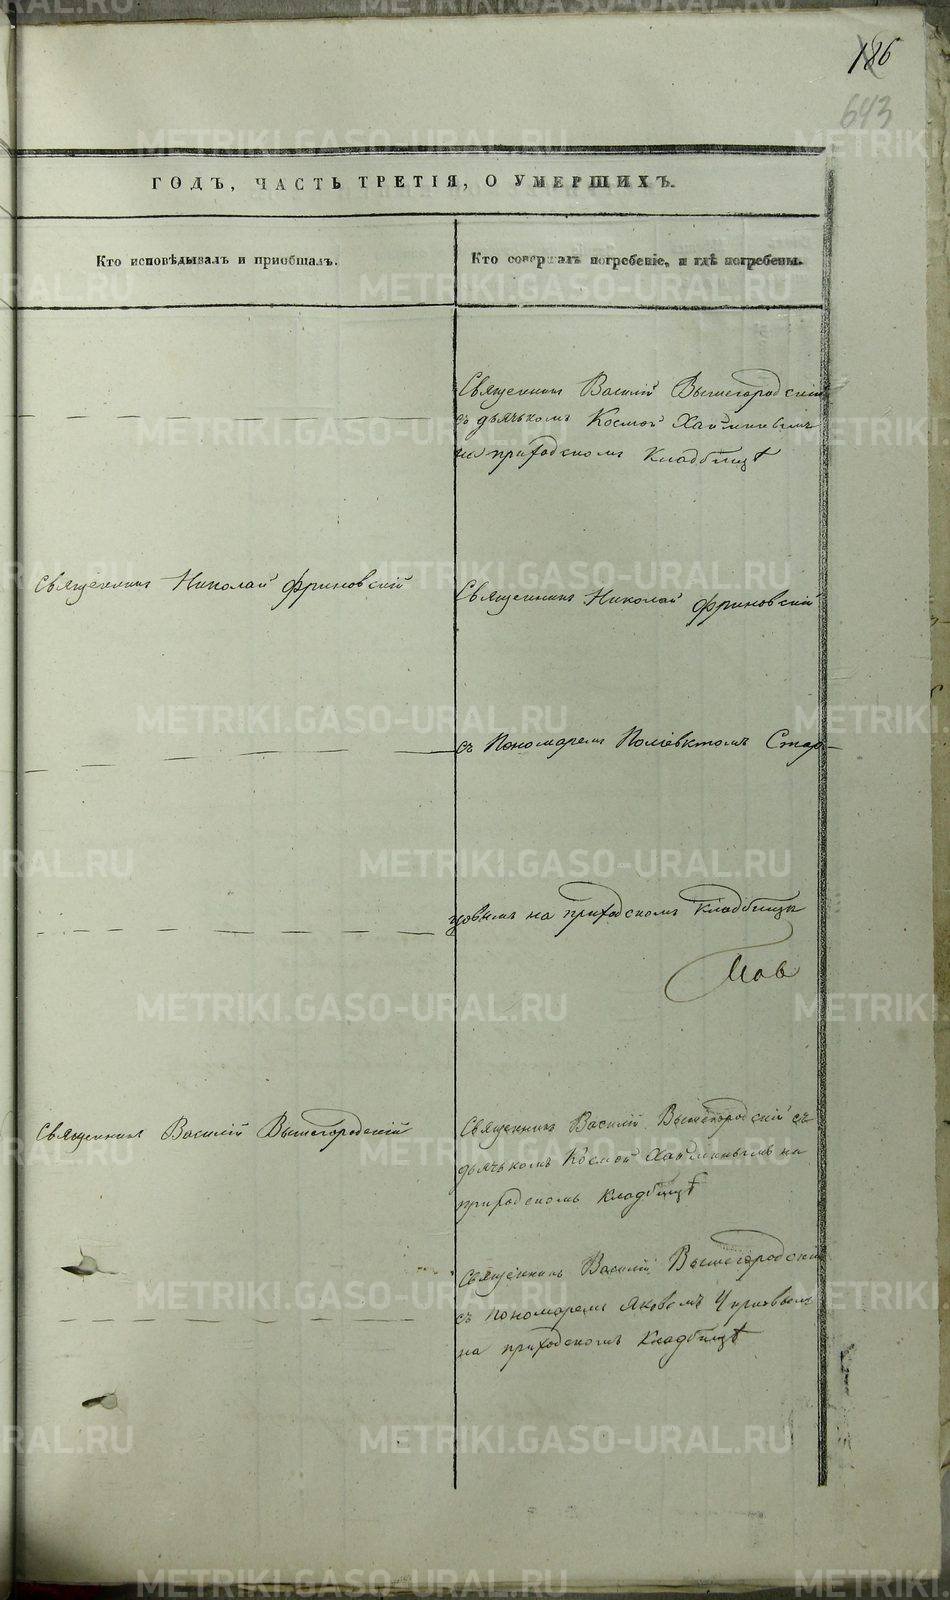 186
643
ГОДЪ, ЧАСТЬ ТРЕТІЯ, О УМЕРШИХЪ.
Кто исповѣдывалъ и приобщалъ.
Кто совершалъ погребеніе, и гдѣ погребены.
Священникъ Василій Вышегородскій
съ дьячькомъ Космой
на приходскомъ кладбищѣ
Священникъ Николай Фриновскій
Священникъ Николай Фриновскій
съ Пономаремъ Поліевктомъ Стар-
цовымъ на приходскомъ кладбищѣ
Священникъ Василій Вышегородскій
Священникъ Василій Вышегородскій съ
дьячькомъ Космой на
приходскомъ кладбищѣ
Священникъ Василій Вышегородскій
съ пономаремъ Яковомъ
на приходскомъ кладбищѣ
METRIKI.GASO-URAL.RU